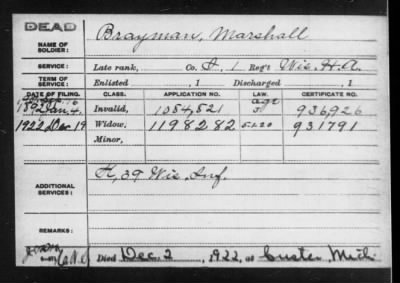 DEAD
NAME OF SOLDIER: Brayman, Marshall
SERVICE: Late rank, Co. F, 1 Reg't Wis. H.A.
TERM OF SERVICE: Enlisted , 1 Discharged , 1
DATE OF FILING. CLASS. APPLICATION NO. LAW. CERTIFICATE NO.
Jan. 4. Invalid, 1354,521 age 936,926
1922 Dec. 19 Widow, 1198282 5-1-20 931791
Minor,
ADDITIONAL SERVICES: 39 Wis. Inf.
REMARKS:
Died Dec. 2, 1922, at Custer Mich